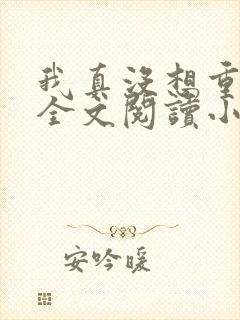 我真没想重
全文閱讀小
安吟暖